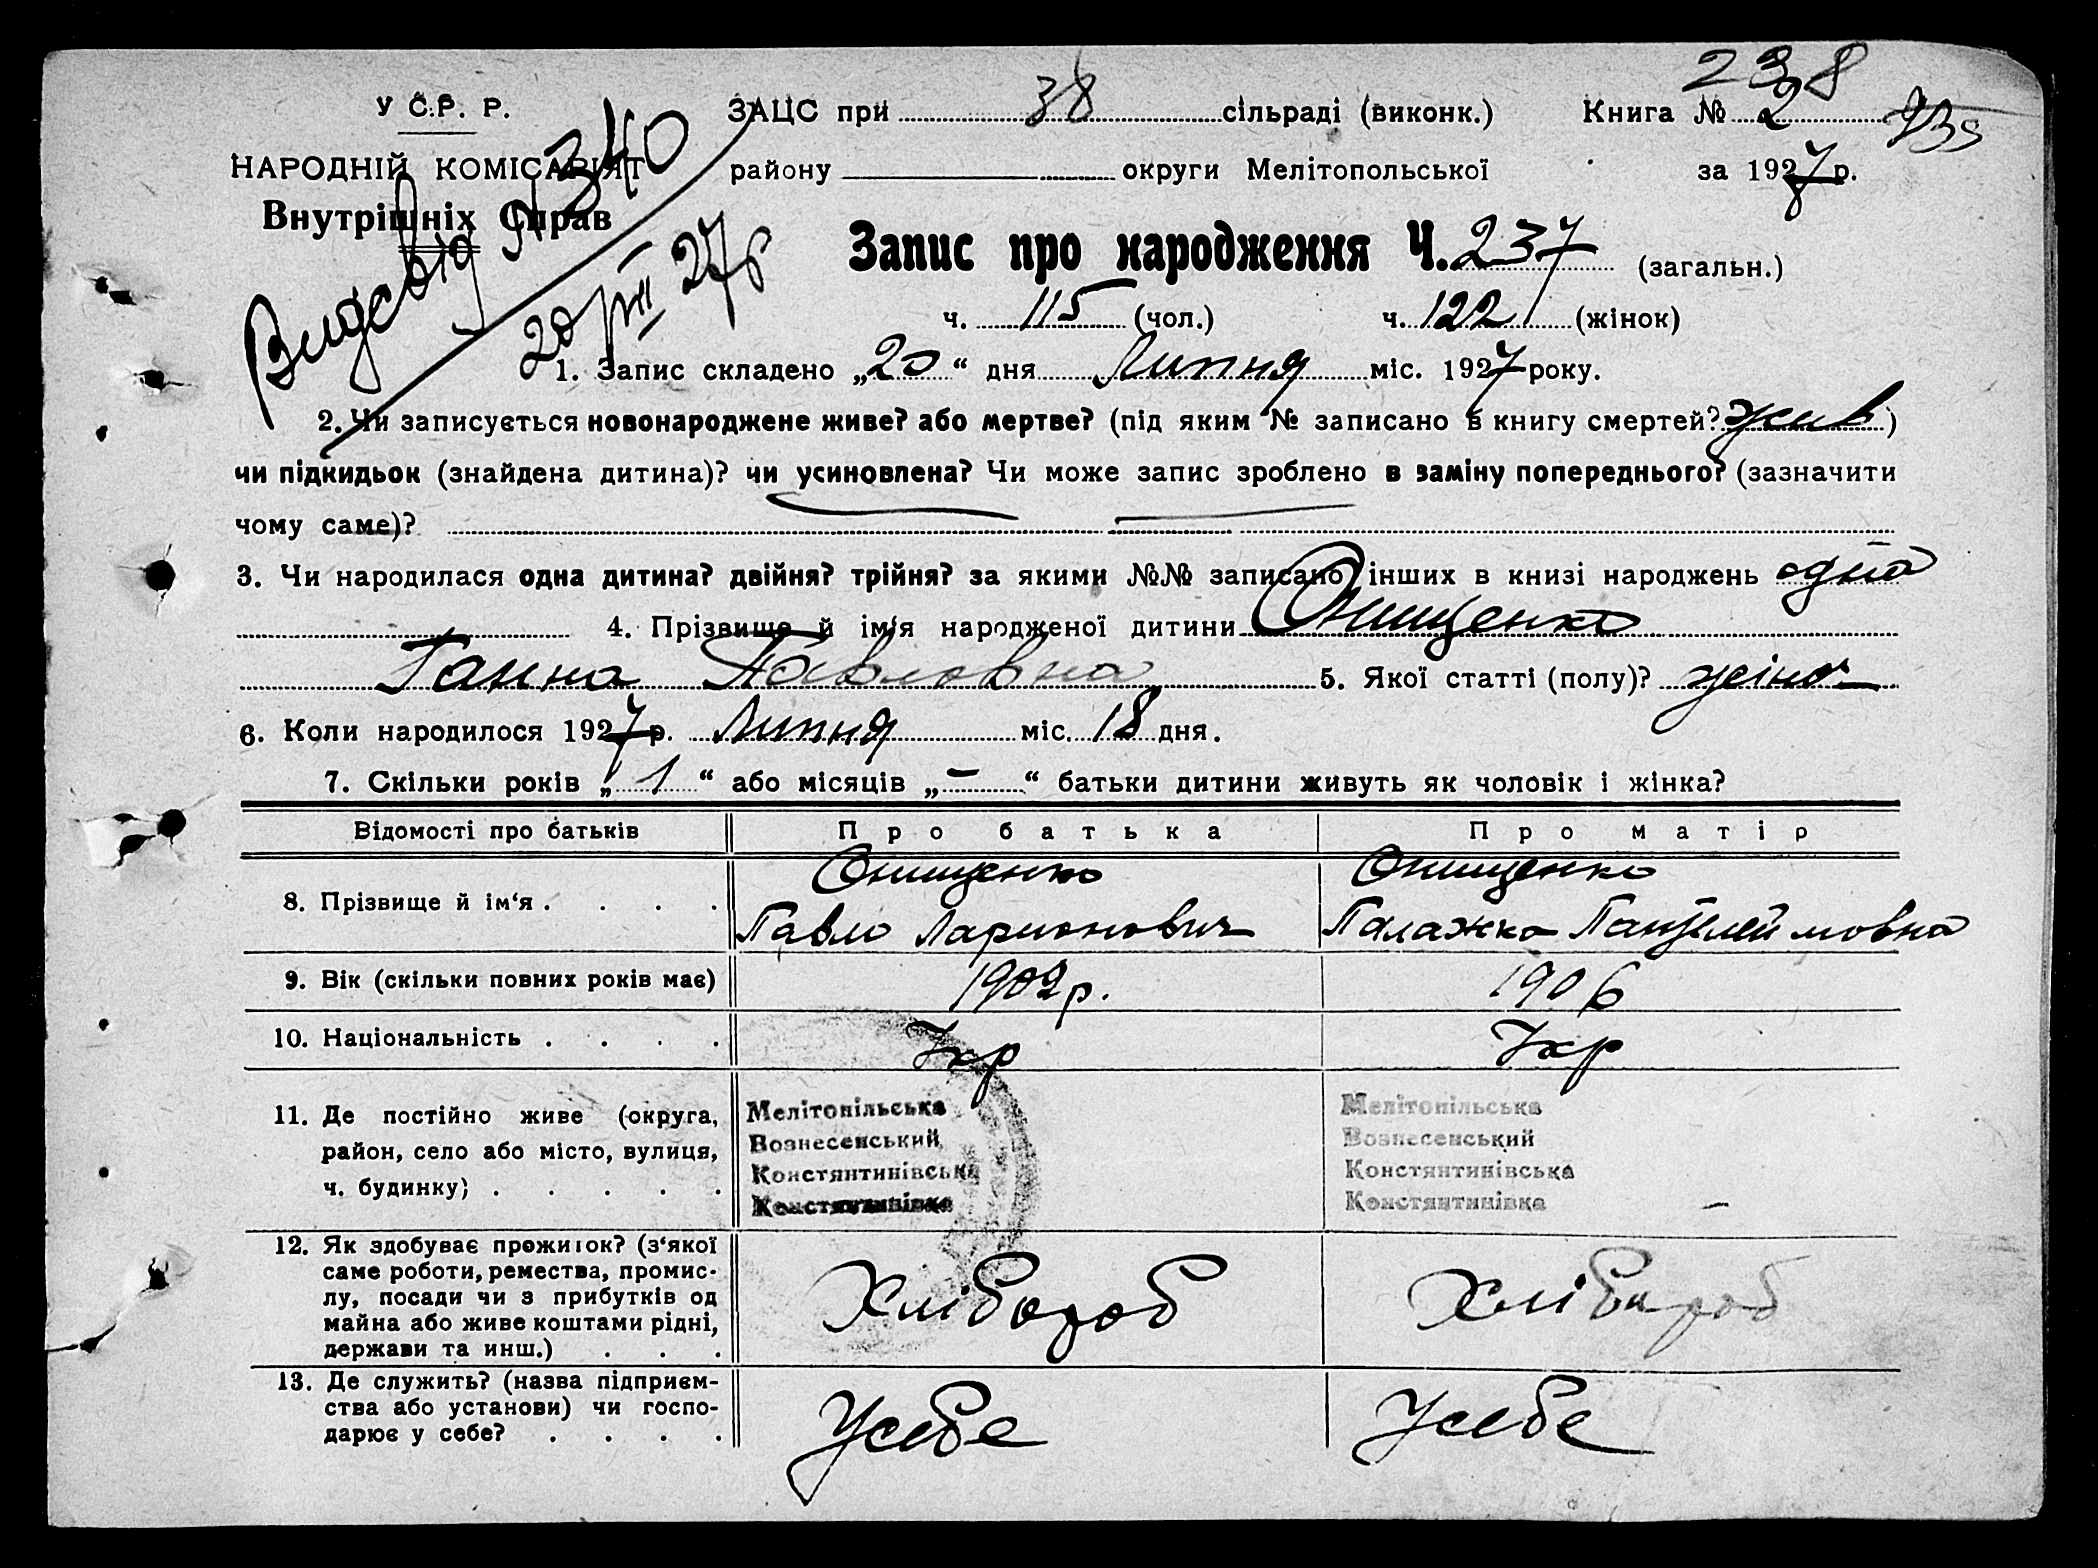 238
У С.Р. Р. ЗАЦС при 38 сільраді (виконк.) Книга № 2
НАРОДНІЙ КОМІСАРІЯТ району округи Мелітопольської за 1927 р.
Внутрішніх Справ
№ 340
20/VII 27 р
Запис про народження Ч. 237 (загальн.)
ч. 115 (чол.) ч. 122 (жінок)
1. Запис складено „20“ дня Липня міс. 1927 року.
2. Чи записується новонароджене живе? або мертве? (під яким № записано в книгу смертей? жив)
чи підкидьок (знайдена дитина)? чи усиновлена? Чи може запис зроблено в заміну попереднього? (зазначити
чому саме)?
3. Чи народилася одна дитина? двійня? трійня? за якими №№ записано інших в книзі народжень одна
4. Прізвище й ім'я народженої дитини Онищенко
Ганна Павловна 5. Якої статті (полу)? жіноч
6. Коли народилося 1927 р. Липня міс. 18 дня.
7. Скільки років „1“ або місяців „—“ батьки дитини живуть як чоловік і жінка?
Відомості про батьків Про батька Про матір
8. Прізвище й ім‘я . . . . Онищенко Онищенко
Павло Ларионович Палажка Пантелеймовна
9. Вік (скільки повних років має) 1902 р. 1906
10. Національність . . . . Укр Укр
11. Де постійно живе (округа, Мелітопільська Мелітопільська
район, село або місто, вулиця, Вознесенський Вознесенський
ч. будинку) . . . . . Констянтинівська Констянтинівська
Констянтинівка Констянтинівка —
12. Як здобуває прожиток? (з‘якої
саме роботи, ремества, промис-
лу, посади чи з прибутків од Хлібороб Хлібороб
майна або живе коштами рідні,
держави та инш.) . . .
13. Де служить? (назва підприєм-
ства або установи) чи госпо- Усебе Усебе
дарює у себе? . . . .